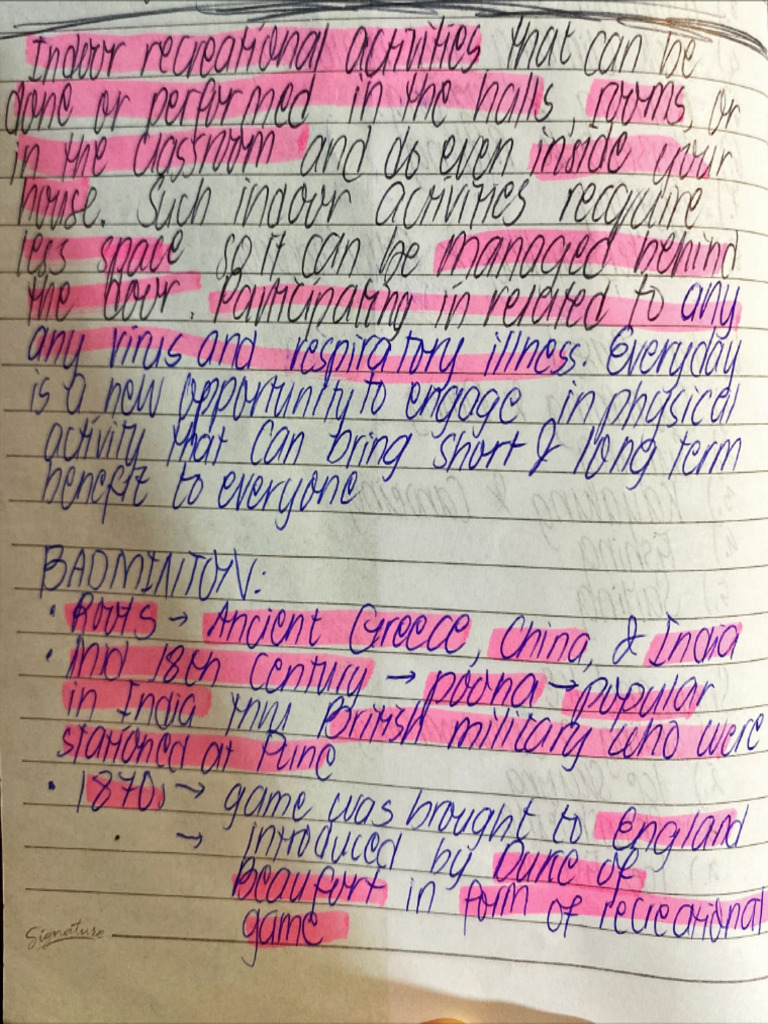 Indoor recreational activities that can be
done or performed in the halls, rooms, or
in the classroom and do even inside your
house. Such indoor activities reaquire
less space so it can be managed behind
the door. Participating in related to any
any virus and respiratory illness. Everyday
is a new opportunity to engage in physical
activity that can bring short & long term
benefit to everyone
BADMINTON:
• Roots → Ancient Greece, China, & India
• Mid 18th century → poona → popular
in India thru British military who were
stationed at Pune
• 1870s → game was brought to England
• → introduced by Duke of
Beaufort in form of recreational
game
Signature